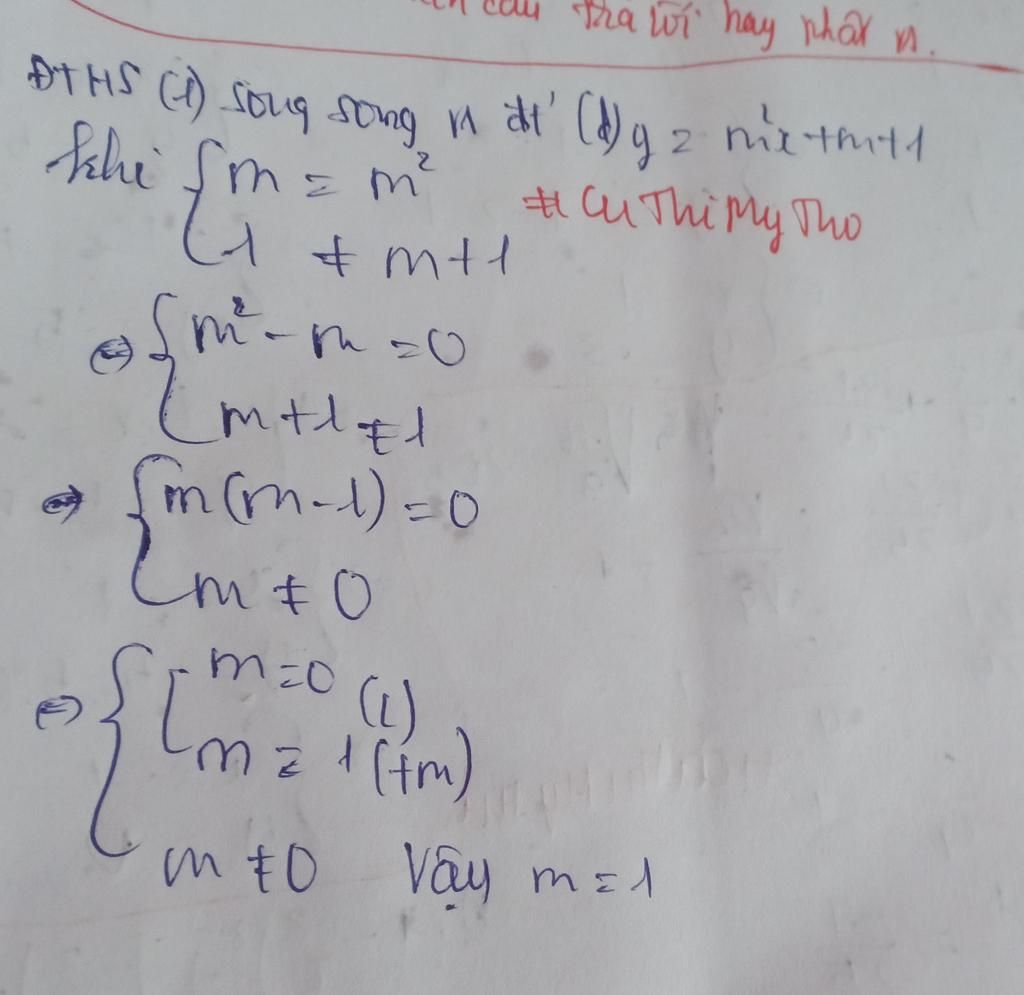 câu trả lời hay nhất n.
ĐTHS (1) song song n đt' (d) y = m²x+m+1
khi { m = m²
1 ≠ m+1
# CuThiMyTho
⇔ { m² - m = 0
m+1 ≠ 1
⇔ { m(m-1) = 0
m ≠ 0
⇔ { [ m=0 (L)
m = 1 (tm)
m ≠ 0 Vậy m = 1